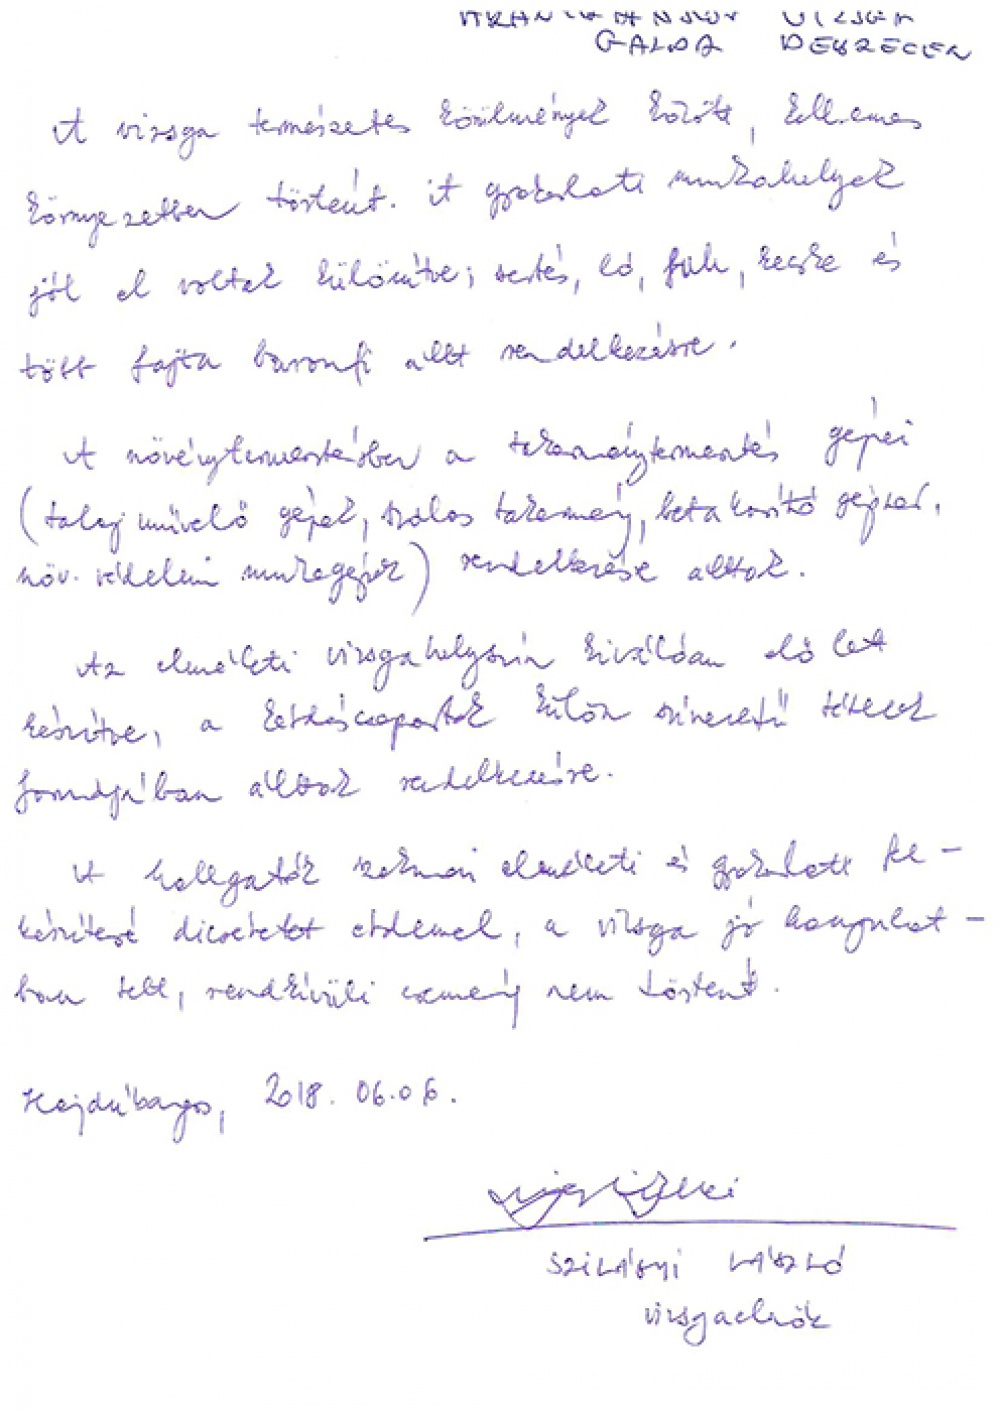 ARANYKALÁSZOS VIZSGA
GALDA DEBRECEN
A vizsga természetes körülmények között, kellemes
környezetben történt. A gyakorlati munkahelyek
jól el voltak különítve; sertés, ló, juh, kecske és
több fajta baromfi állt rendelkezésre.
A növénytermesztésben a takarmánytermesztés gépei
(talajművelő gépek, szálas takarmány, betakarító gépsor,
növ. védelmi munkagépek) rendelkezésre álltak.
Az elméleti vizsgahelyszín kiválóan elő lett
készítve, a kérdéscsoportok külön színezetű tételek
formájában álltak rendelkezésre.
A hallgatók szakmai elméleti és gyakorlati fel-
készítése dicséretet érdemel, a vizsga jó hangulat-
ban telt, rendkívüli esemény nem történt.
Hajdúbagos, 2018. 06.06.
SZILÁGYI LÁSZLÓ
vizsgaelnök